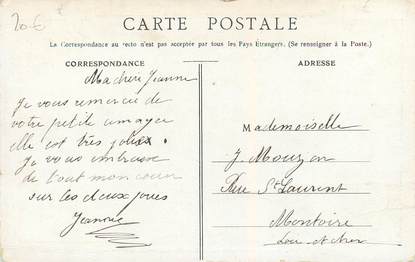 20€
CARTE POSTALE
La Correspondance au recto n'est pas acceptée par tous les Pays Etrangers. (Se renseigner à la Poste.)
CORRESPONDANCE
Ma chere Jeanne
Je vous remercie de
votre petite image
elle est très jolie.
Je vous embrasse
de tout mon coeur
sur les deux joues
Jeanne
ADRESSE
Mademoiselle
J. Mouzon
Rue St Laurent
Montoire
Loir et Cher